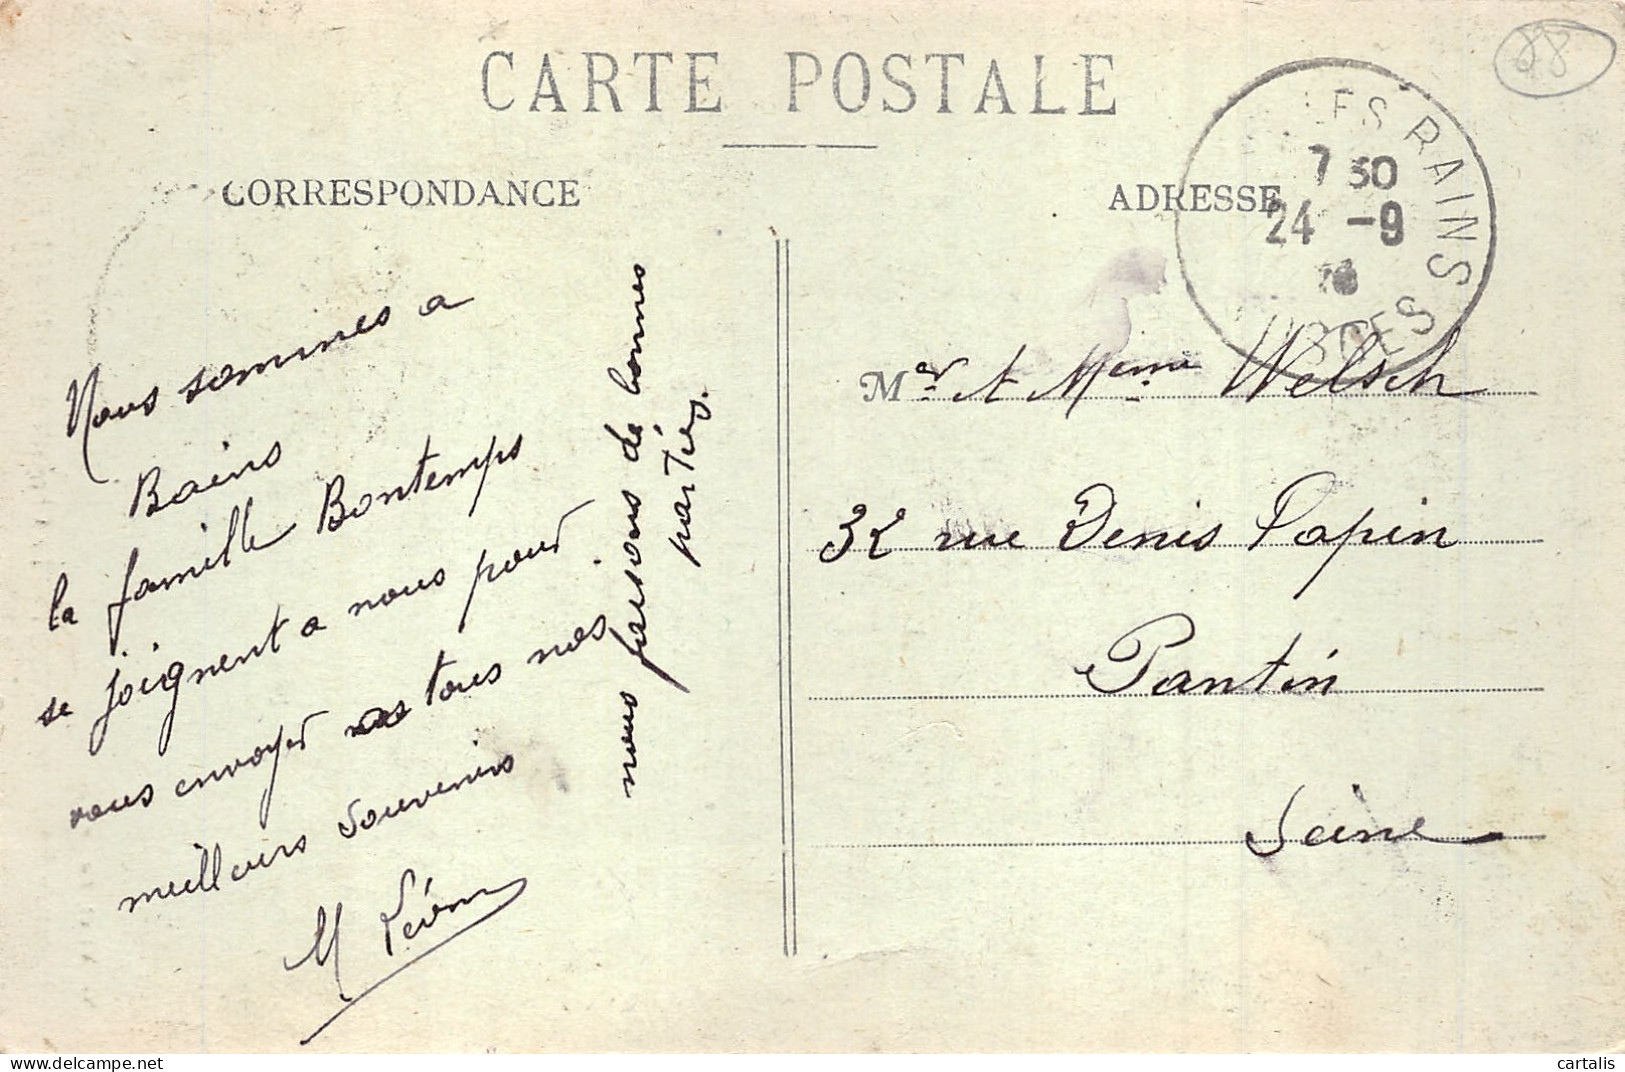 CARTE POSTALE
88
CORRESPONDANCE
ADRESSE
LES BAINS
7 30
24 -9
VOSGES
Nous sommes a
Bains
la famille Bontemps
se joignent a nous pour
vous envoyer tous nos
meilleurs souvenirs
M Léon
nous faisons de bonnes
parties.
Mer et Meme Welsch
32 rue Denis Papin
Pantin
Seine
cartalis